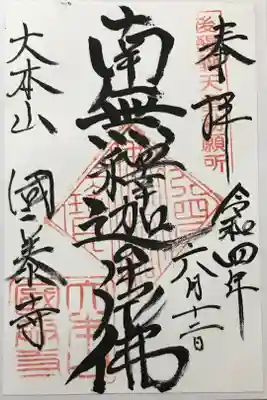 奉拝
令和四年
六月十二日
南無釋迦牟尼佛
大本山
國泰寺